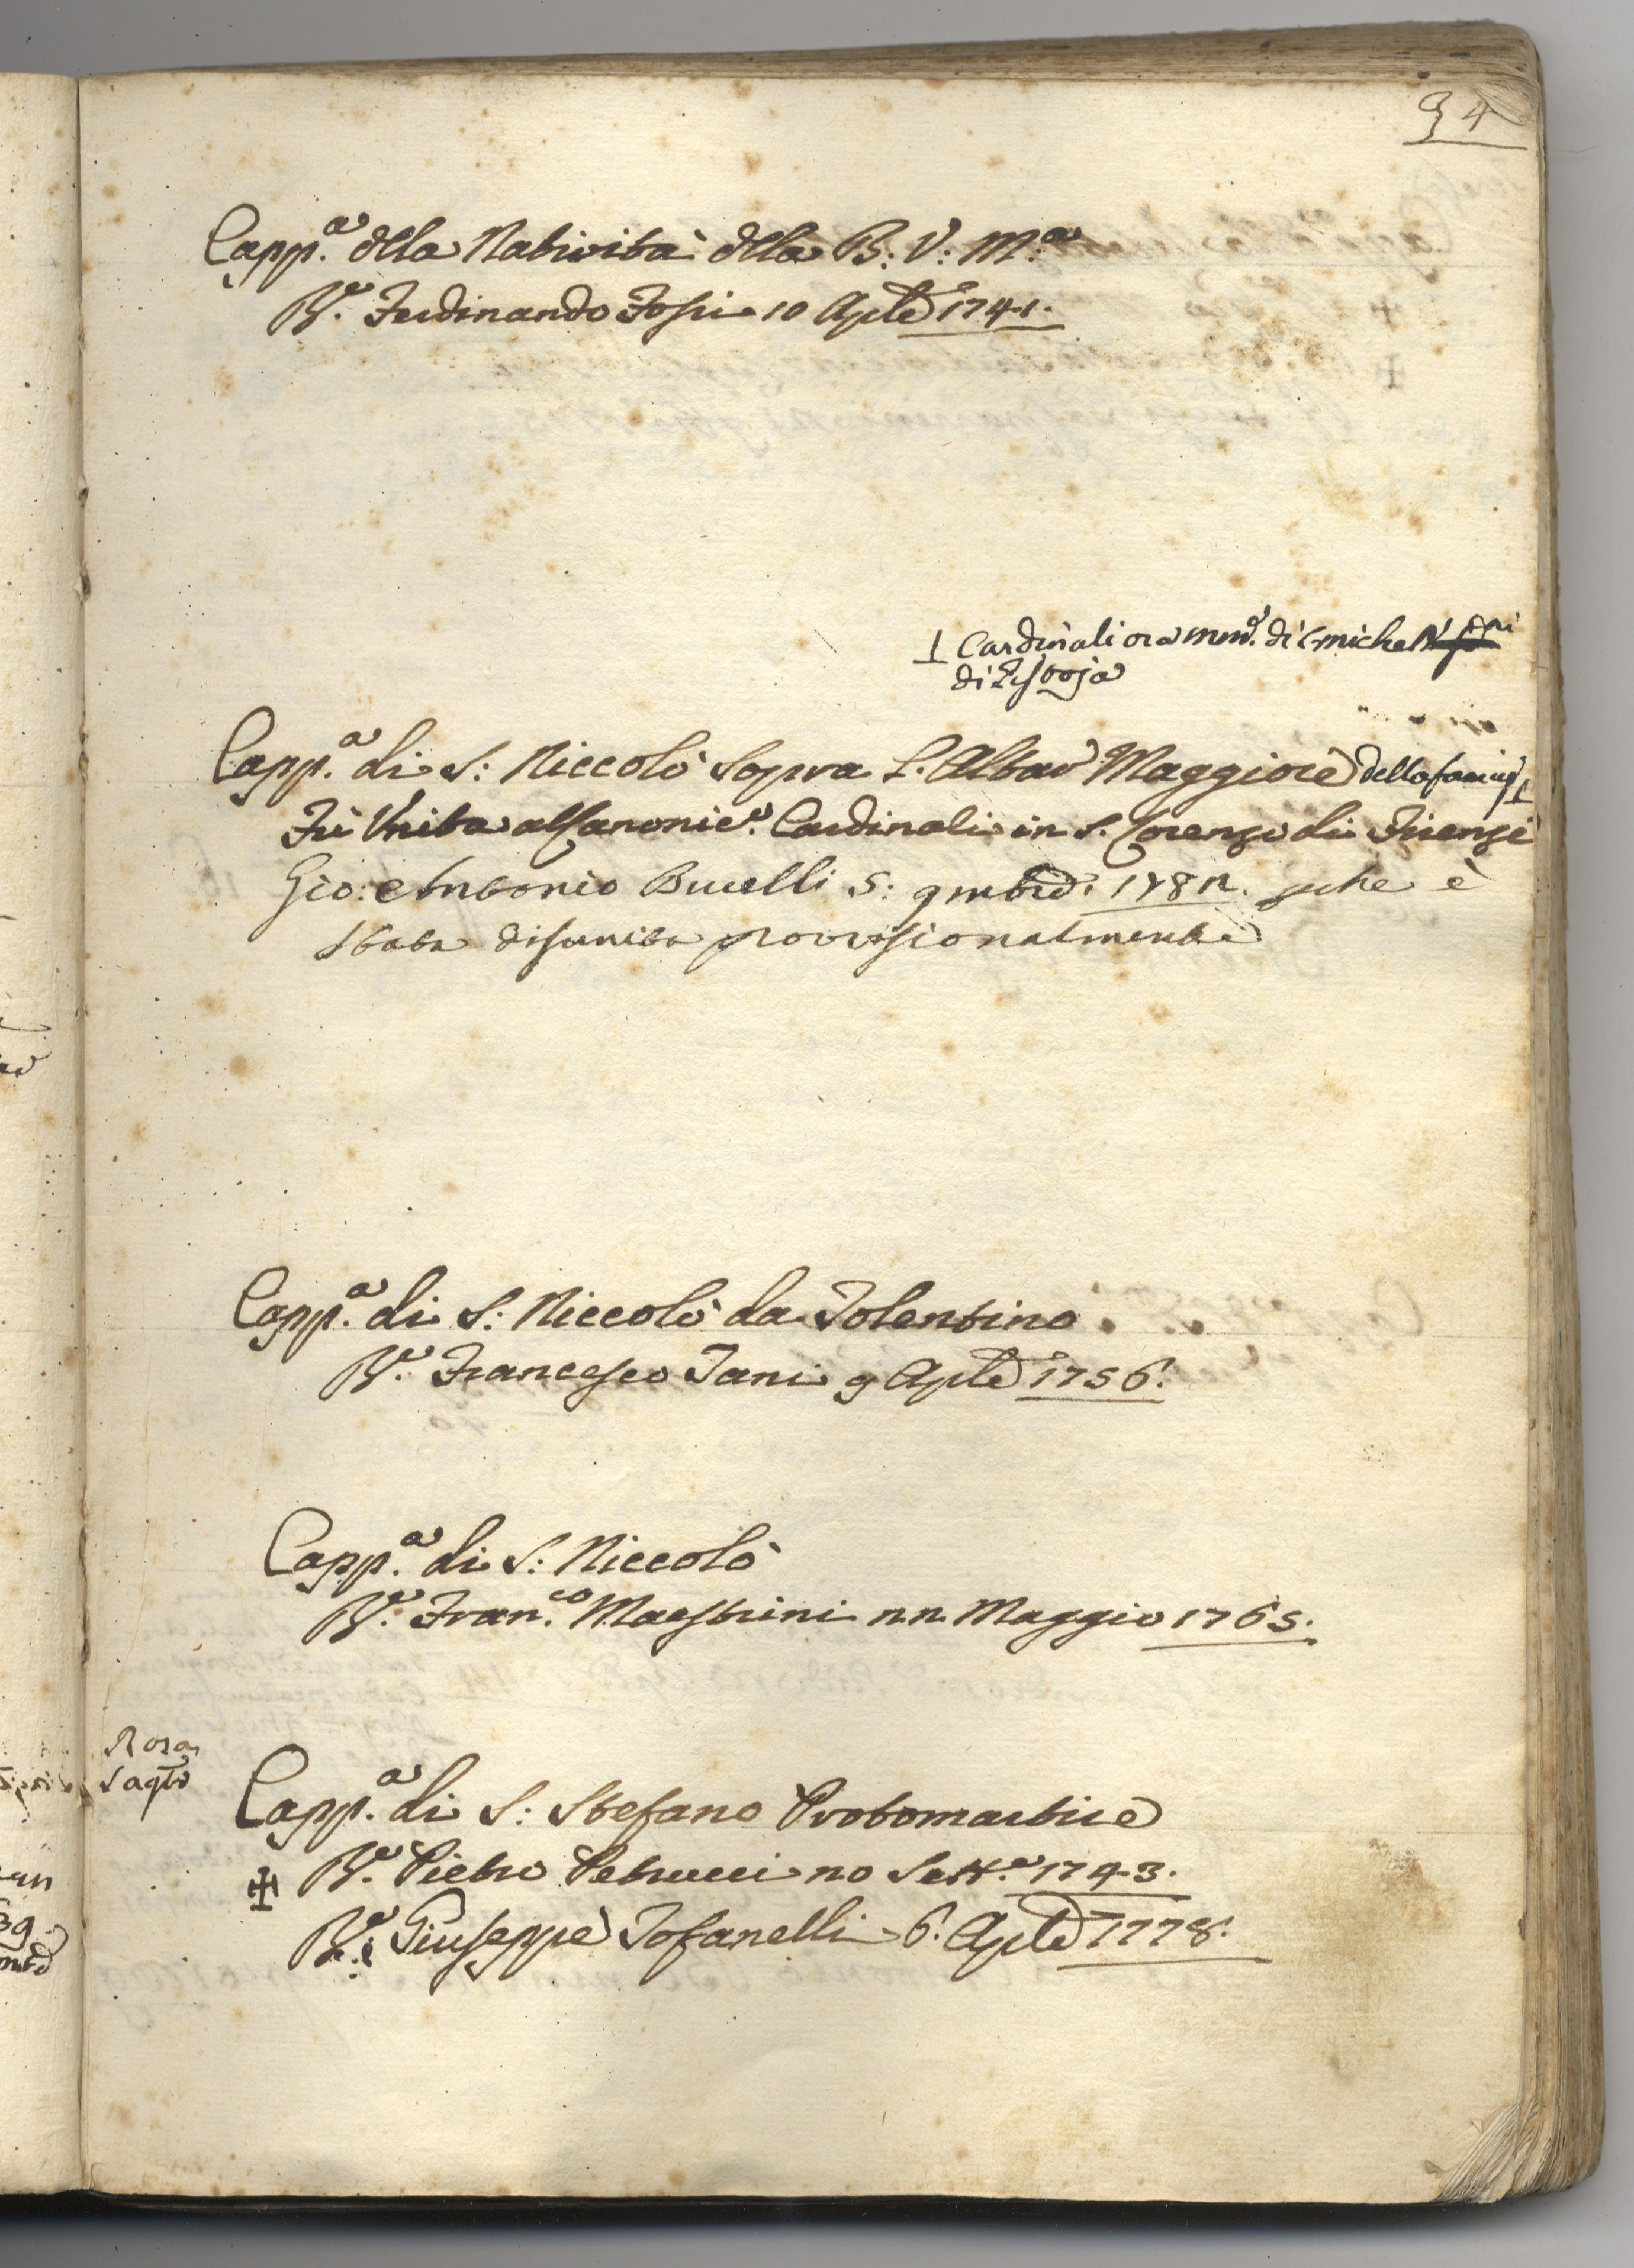 94
Capp.a della Natività della B: V: M.a
R.e Ferdinando Fossi 10 Aple 1741.
⊥ Cardinali ora
di Pistoja
Capp.a di S: Niccolò sopra l'Altar Maggiore della famig ⊥
Fù Unita al Canonic.o Cardinali in S. Lorenzo di Firenze
Gio: Antonio Bucelli S: 9mbre 1782. che è
stata disunita provvisionalmente
Capp.a di S: Niccolò da Tolentino
R.e Francesco Tani 9 Aple 1756.
Capp.a di S: Niccolò
R.e Fran.co Maestrini 22 Maggio 1765.
Rosa
Capp.a di S: Stefano Protomartire
✠ R.e Pietro Petrucci 20 Sett.e 1743.
R.e Giuseppe Tofanelli 6. Aple 1778.